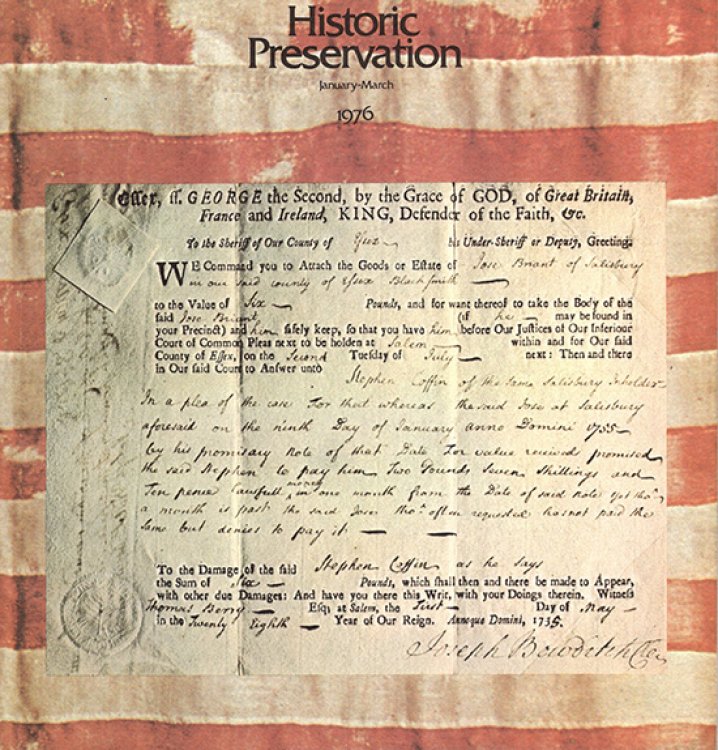 Historic
Preservation
January-March
1976
Essex, ss. GEORGE the Second, by the Grace of GOD, of Great Britain,
France and Ireland, KING, Defender of the Faith, &c.
To the Sheriff of Our County of Essex his Under-Sheriff or Deputy, Greeting:
WE Command you to Attach the Goods or Estate of Jose Briant of Salisbury
in our said County of Essex Blacksmith
to the Value of Six Pounds, and for want thereof to take the Body of the
said Jose Briant (if he may be found in
your Precinct) and him safely keep, so that you have him before Our Justices of Our Inferiour
Court of Common Pleas next to be holden at Salem within and for Our said
County of Essex, on the Second Tuesday of July next: Then and there
in Our said Court to Answer unto
Stephen Coffin of the same Salisbury Inholder
In a plea of the case For that whereas the said Jose at Salisbury
aforesaid on the ninth Day of January anno Domini 1755
by his promissary Note of that Date For value received promised
the said Stephen to pay him Two Pounds Seven Shillings and
Ten pence Lawfull money in one month from the Date of said note yet tho'
a month is past the said Jose tho' often requested has not paid the
Same but denies to pay it
To the Damage of the said Stephen Coffin as he says
the Sum of Six Pounds, which shall then and there be made to Appear,
with other due Damages: And have you there this Writ, with your Doings therein. Witness
Thomas Berry Esq; at Salem, the First Day of May
in the Twenty Eighth Year of Our Reign. Annoque Domini, 1755.
Joseph Bowditch Cler